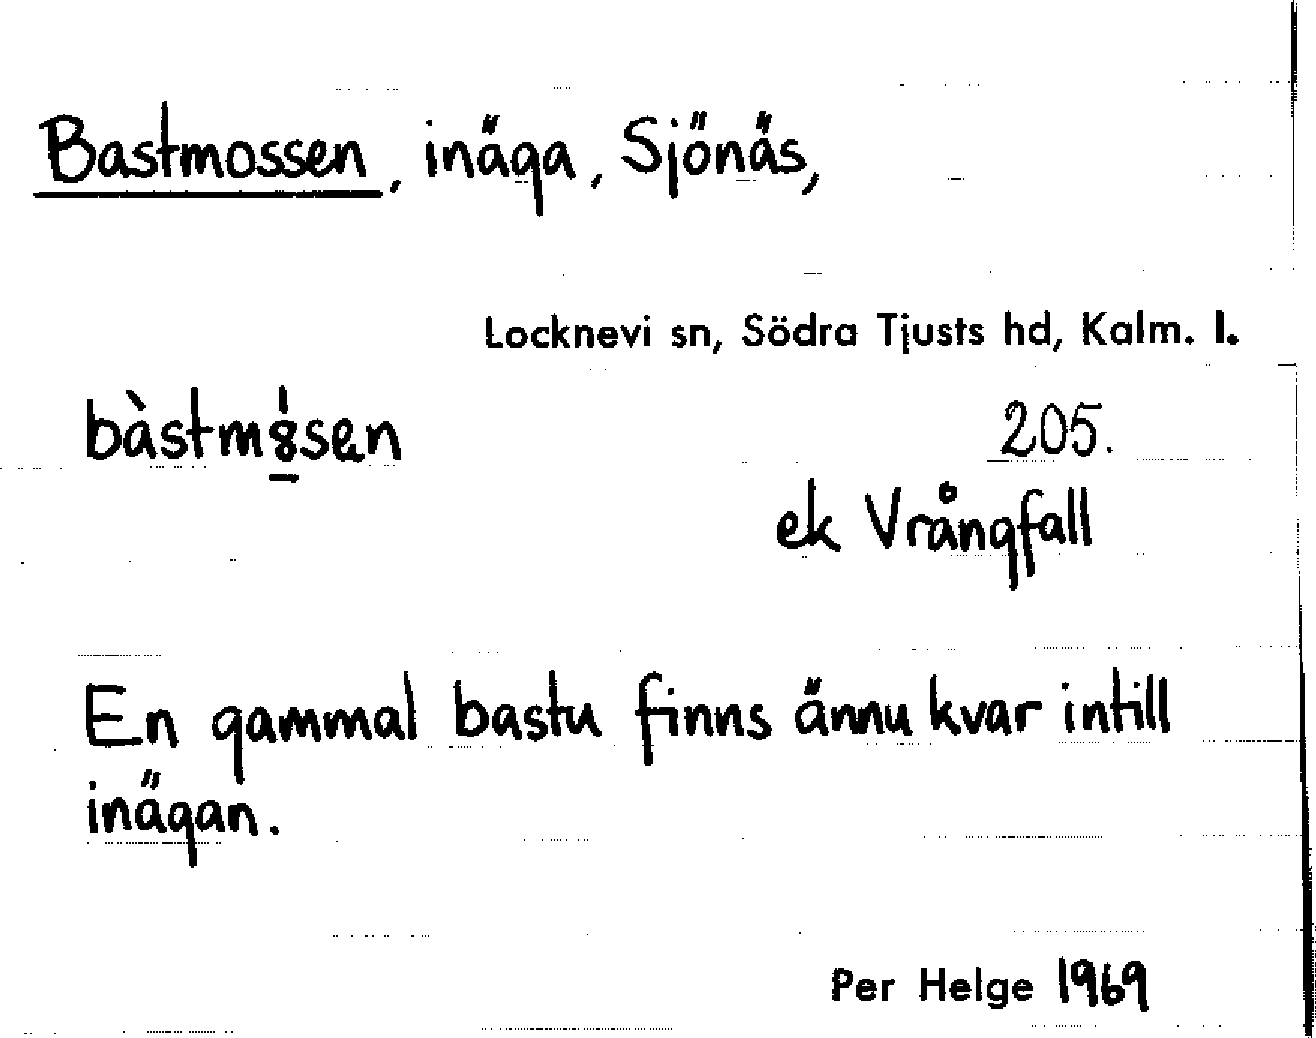 Bastmossen, inäga, Sjönäs,
Locknevi sn, Södra Tjusts hd, Kalm. l.
205.
ek Vrångfall
En gammal bastu finns ännu kvar intill
inägan.
Per Helge 1969